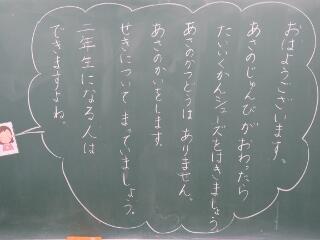 おはようございます。
あさのじゅんびがおわったら
たいいくかんシューズをはきましょう
あさのかつどうは ありません。
あさのかいをします。
せきについて まっていましょう。
二年生になる人は
できますよね。